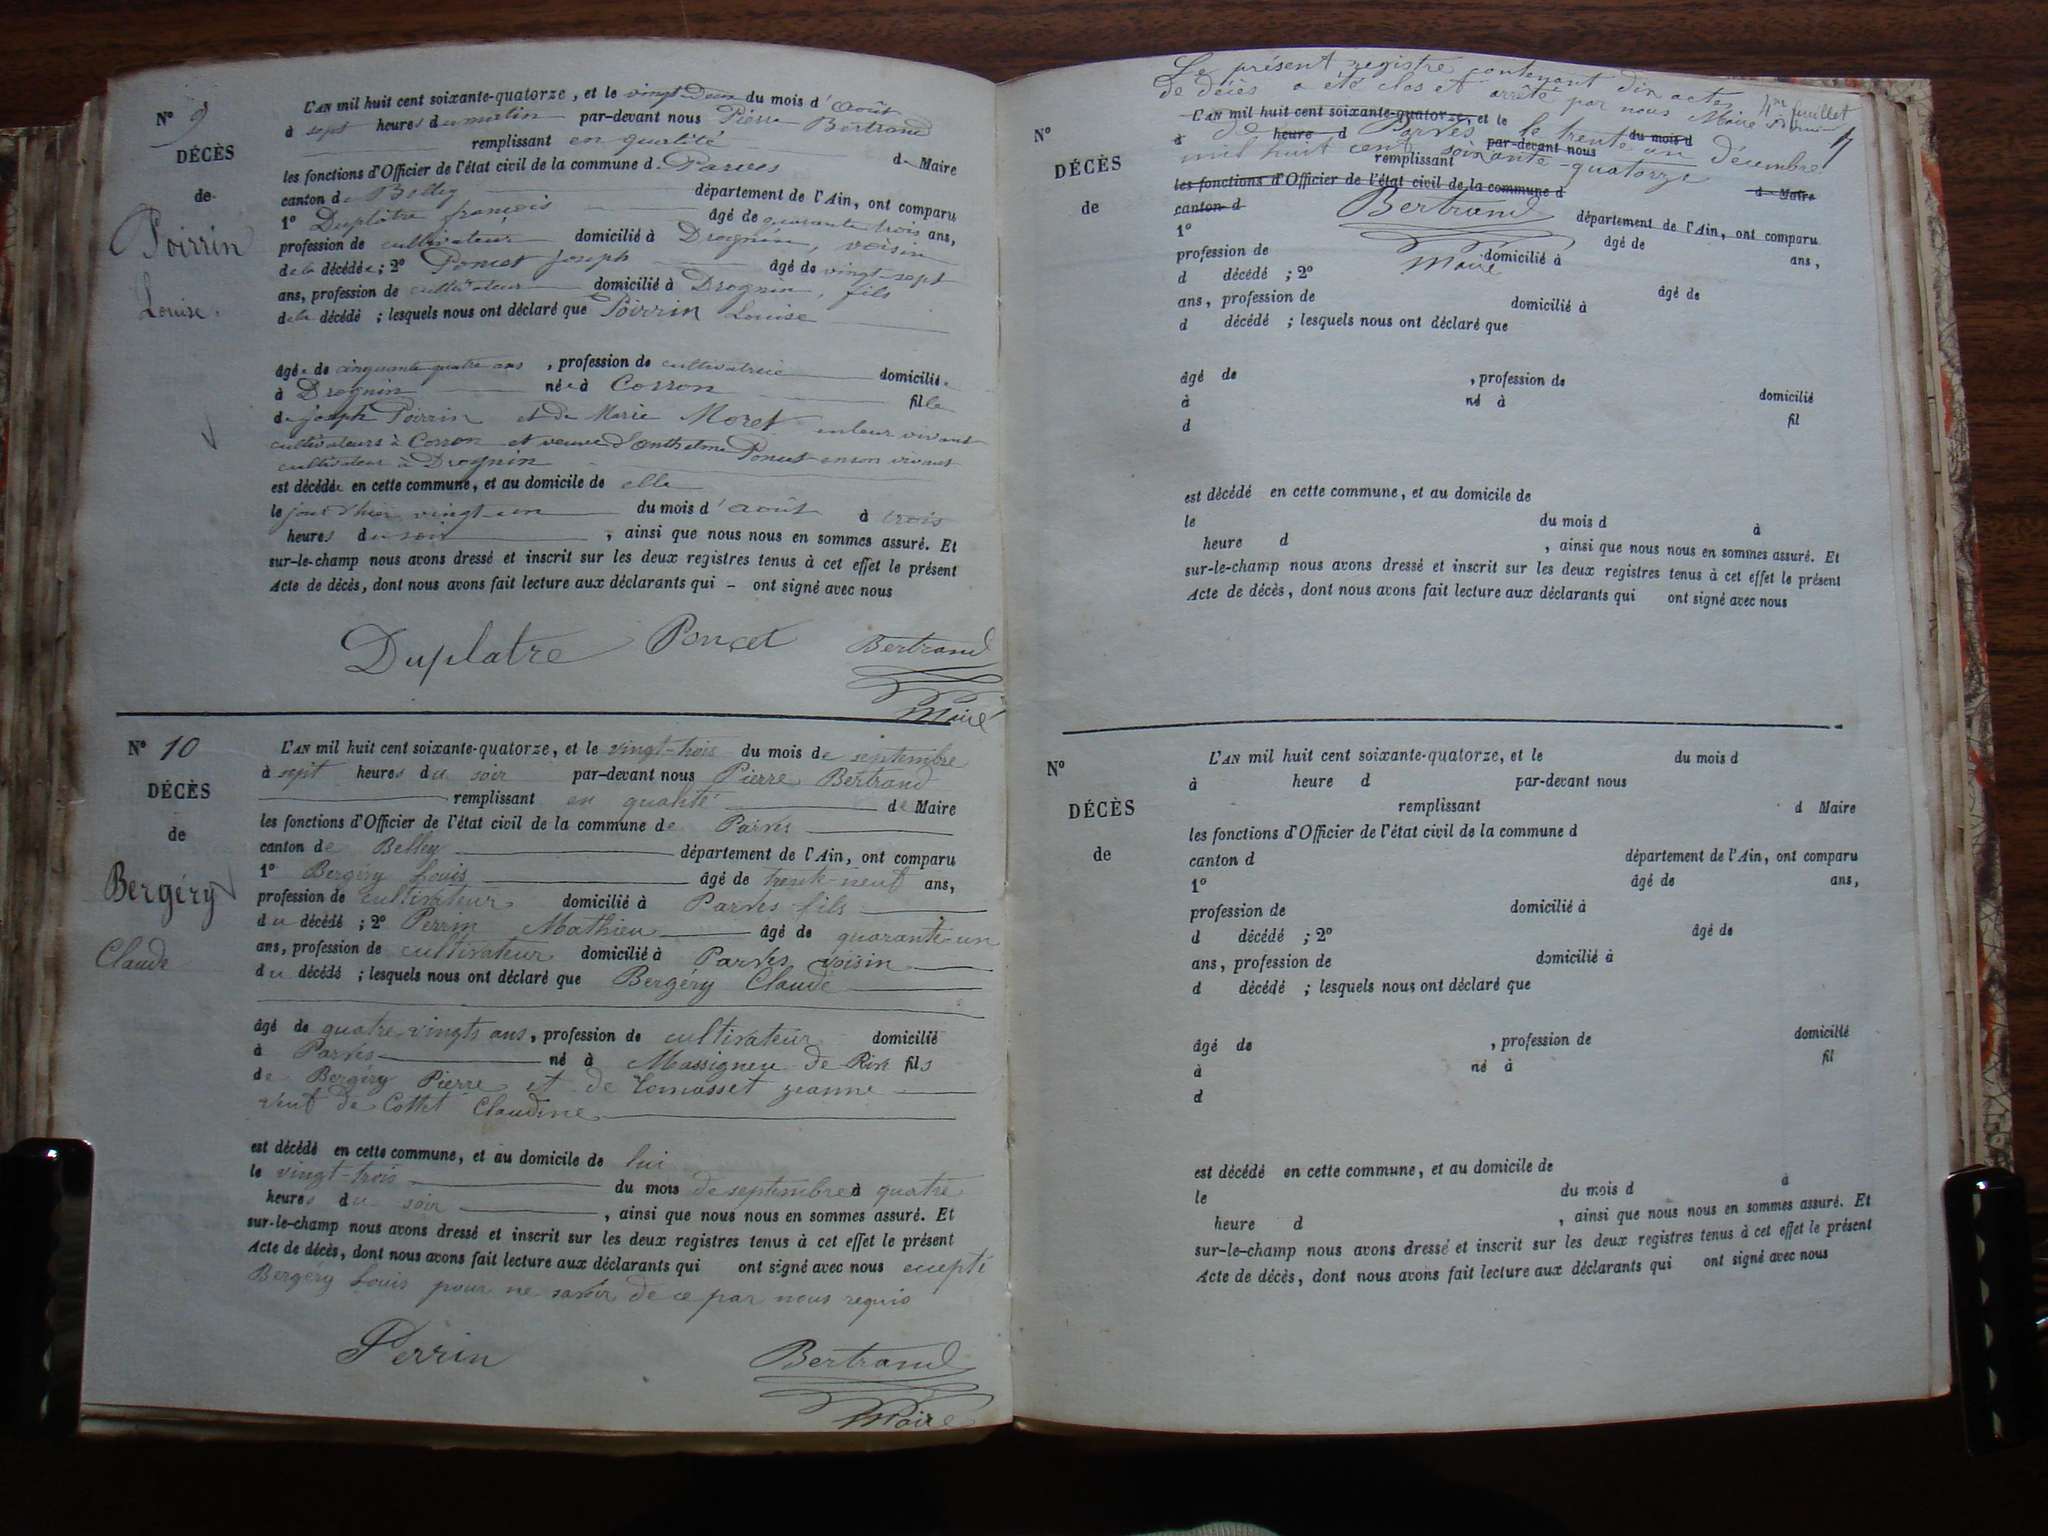 N° 9
DÉCÈS
de
Poirrin
Louise.
L'AN mil huit cent soixante-quatorze, et le vingt-deux du mois d'août
à sept heures du matin par-devant nous Pierre Bertrand
remplissant en qualité de Maire
les fonctions d'Officier de l'état civil de la commune d. Parves
canton de Belley département de l'Ain, ont comparu
1° Duplâtre françois âgé de quarante trois ans,
profession de cultivateur domicilié à Drognin, voisin
de la décédée ; 2° Poncet joseph âgé de vingt-sept
ans, profession de cultivateur domicilié à Drognin, fils
de la décédé ; lesquels nous ont déclaré que Poirrin Louise
âgée de cinquante quatre ans , profession de cultivatrice domiciliée
à Drognin née à Corron fille
de joseph Poirrin et de Marie Moret en leur vivant
cultivateurs à Corron et veuve d'Onthelme Poncet en son vivant
cultivateur à Drognin
est décédée en cette commune, et au domicile de elle
le jour d'hier vingt-un du mois d'août à trois
heures du soir , ainsi que nous nous en sommes assuré. Et
sur-le-champ nous avons dressé et inscrit sur les deux registres tenus à cet effet le présent
Acte de décès, dont nous avons fait lecture aux déclarants qui - ont signé avec nous
Duplatre Poncet Bertrand
Maire
N° 10
DÉCÈS
de
Bergéry
Claude
L'AN mil huit cent soixante-quatorze, et le vingt-trois du mois de septembre
à sept heures du soir par-devant nous Pierre Bertrand
remplissant en qualité de Maire
les fonctions d'Officier de l'état civil de la commune de Parves
canton de Belley département de l'Ain, ont comparu
1° Bergéry Louis âgé de trente-neuf ans,
profession de cultivateur domicilié à Parves fils
du décédé ; 2° Perrin Mathieu âgé de quarante un
ans, profession de cultivateur domicilié à Parves voisin
du décédé ; lesquels nous ont déclaré que Bergéry Claude
âgé de quatre vingts ans, profession de cultivateur domicilié
à Parves né à Massigneu de Rive fils
de Bergéry Pierre et de Comasset jeanne
veuf de Cottet Claudine
est décédé en cette commune, et au domicile de lui
le vingt-trois du mois de septembre à quatre
heures du soir , ainsi que nous nous en sommes assuré. Et
sur-le-champ nous avons dressé et inscrit sur les deux registres tenus à cet effet le présent
Acte de décès, dont nous avons fait lecture aux déclarants qui ont signé avec nous eccepté
Bergéry Louis pour ne savoir de ce par nous requis
Perrin Bertrand
Maire
Le présent registre contenant dix actes
de décès a été clos et arrêté par nous Maire
de Parves le trente un Décembre
mil huit cent soixante-quatorze
Bertrand
Maire
4me feuillet
N°
DÉCÈS
de
L'AN mil huit cent soixante-quatorze, et le du mois d
à heure d par-devant nous
remplissant d Maire
les fonctions d'Officier de l'état civil de la commune d
canton d département de l'Ain, ont comparu
1° âgé de ans,
profession de domicilié à
d décédé ; 2° âgé de
ans, profession de domicilié à
d décédé ; lesquels nous ont déclaré que
âgé de , profession de domicilié
à né à fil
d
est décédé en cette commune, et au domicile de
le du mois d à
heure d , ainsi que nous nous en sommes assuré. Et
sur-le-champ nous avons dressé et inscrit sur les deux registres tenus à cet effet le présent
Acte de décès, dont nous avons fait lecture aux déclarants qui ont signé avec nous
N°
DÉCÈS
de
L'AN mil huit cent soixante-quatorze, et le du mois d
à heure d par-devant nous
remplissant d Maire
les fonctions d'Officier de l'état civil de la commune d
canton d département de l'Ain, ont comparu
1° âgé de ans,
profession de domicilié à
d décédé ; 2° âgé de
ans, profession de domicilié à
d décédé ; lesquels nous ont déclaré que
âgé de , profession de domicilié
à né à fil
d
est décédé en cette commune, et au domicile de
le du mois d à
heure d , ainsi que nous nous en sommes assuré. Et
sur-le-champ nous avons dressé et inscrit sur les deux registres tenus à cet effet le présent
Acte de décès, dont nous avons fait lecture aux déclarants qui ont signé avec nous